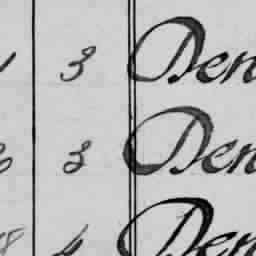 3 Den
3 Den
4 Den